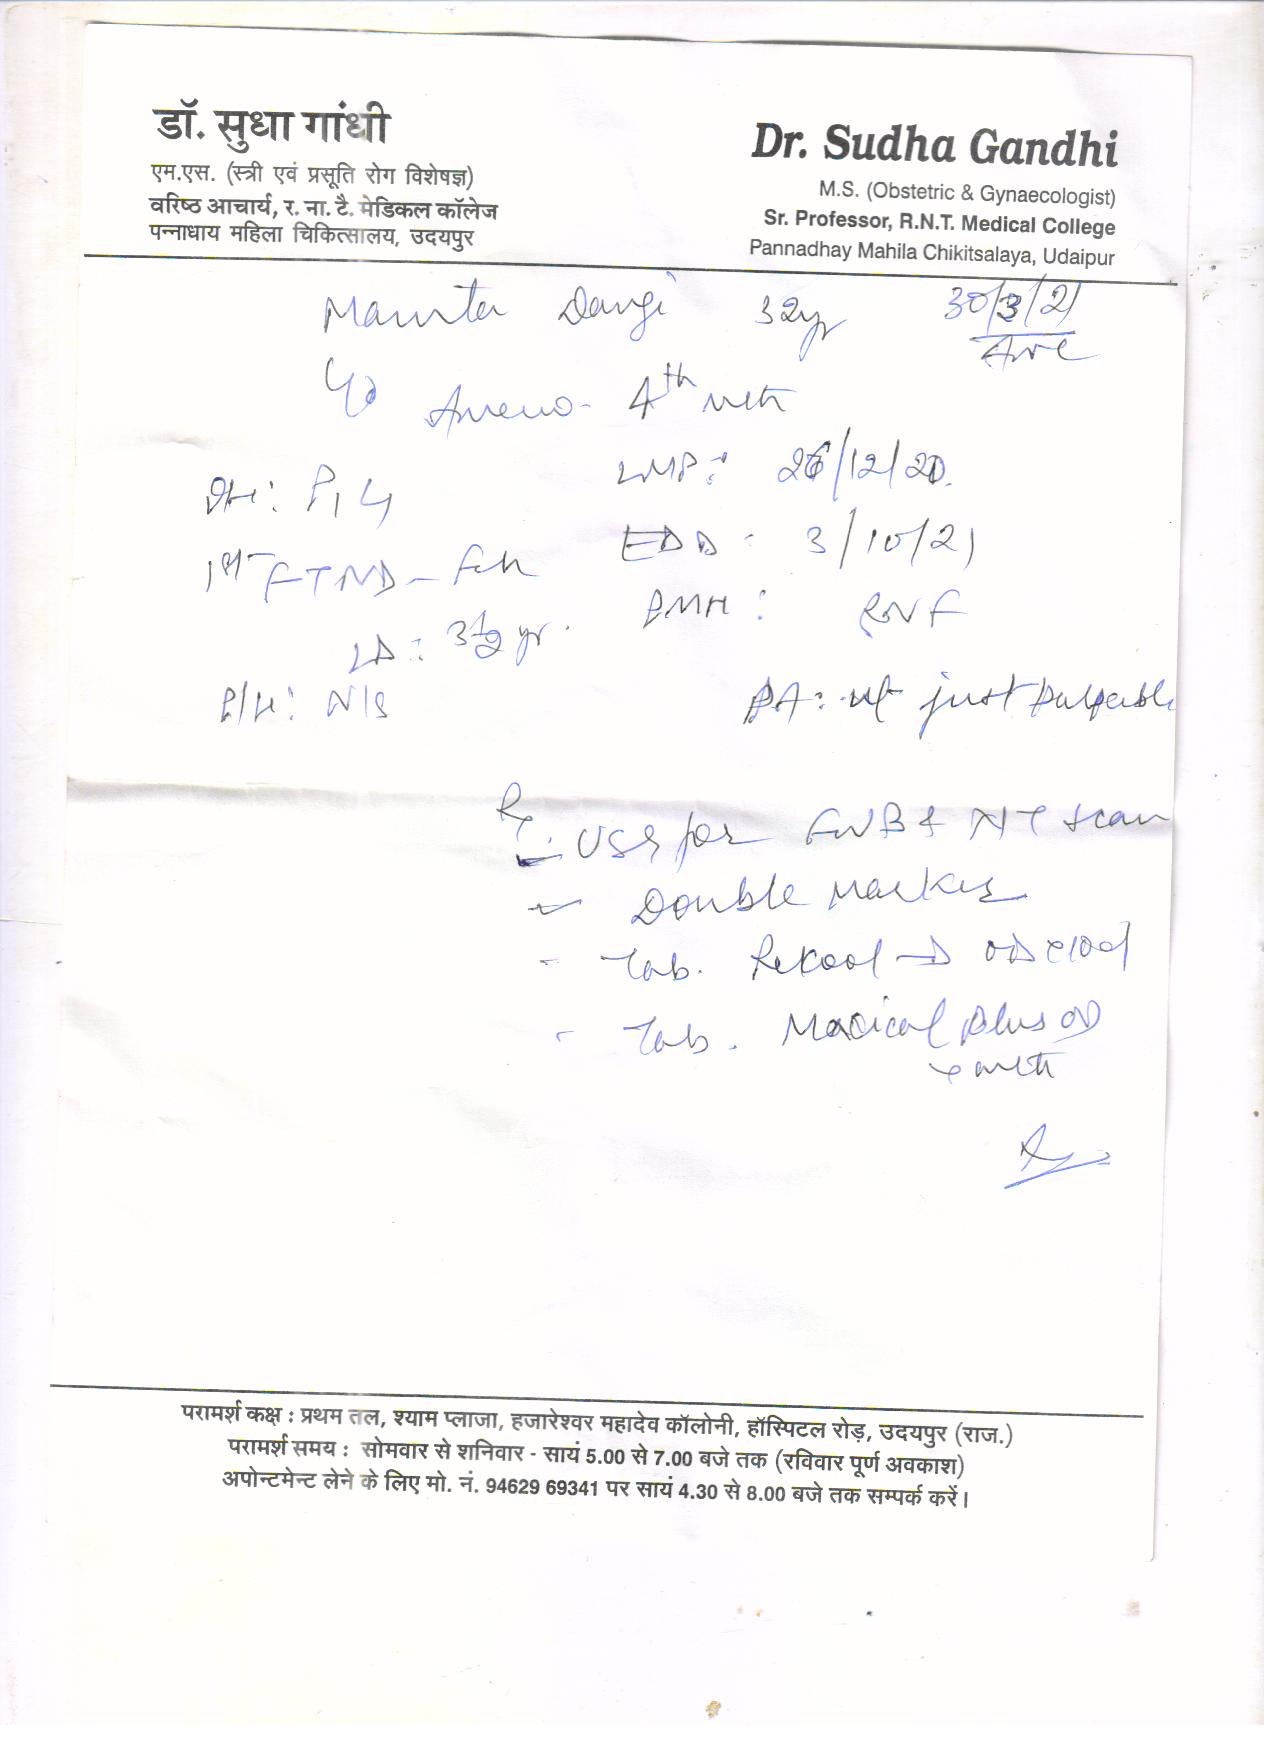 डॉ. सुधा गांधी
एम.एस. (स्त्री एवं प्रसूति रोग विशेषज्ञ)
वरिष्ठ आचार्य, र. ना. टै. मेडिकल कॉलेज
पन्नाधाय महिला चिकित्सालय, उदयपुर
Dr. Sudha Gandhi
M.S. (Obstetric & Gynaecologist)
Sr. Professor, R.N.T. Medical College
Pannadhay Mahila Chikitsalaya, Udaipur
Mamta Dangi 32yr 30/3/21
ANC
4th mth
LMP: 26/12/20
OH: P1L1
EDD: 3/10/21
1st FTND - Fch
PMH:
LD: 3½ yr.
P/H: N/S
PA: ut just palpable
Rx
- USG for FWB & NT scan
- Double Marker
- Tab. Rekool-D OD
- Tab. plus OD
x mth
परामर्श कक्ष : प्रथम तल, श्याम प्लाजा, हजारेश्वर महादेव कॉलोनी, हॉस्पिटल रोड़, उदयपुर (राज.)
परामर्श समय : सोमवार से शनिवार - सायं 5.00 से 7.00 बजे तक (रविवार पूर्ण अवकाश)
अपोन्टमेन्ट लेने के लिए मो. नं. 94629 69341 पर सायं 4.30 से 8.00 बजे तक सम्पर्क करें।